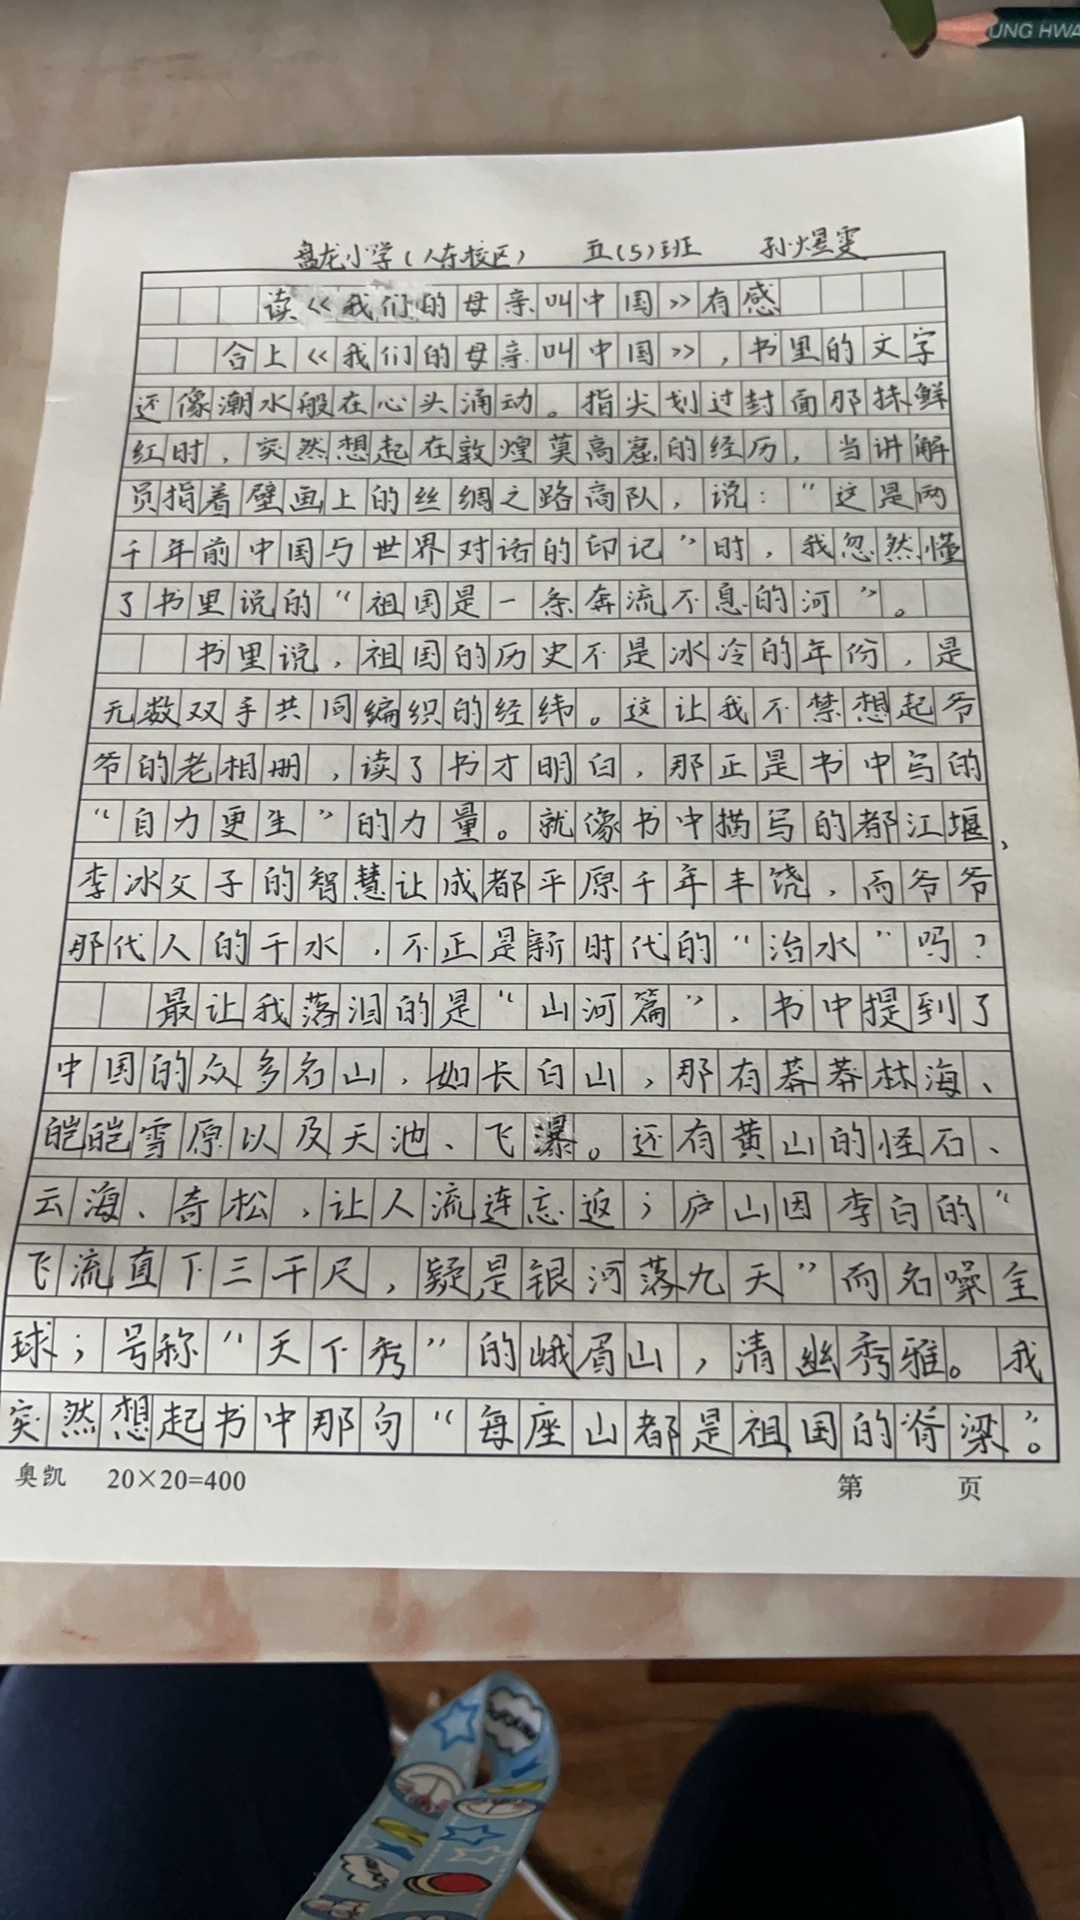 UNG HWA
盘龙小学(人东校区) 五(5)班 孙煜雯
读《我们的母亲叫中国》有感
合上《我们的母亲叫中国》，书里的文字
还像潮水般在心头涌动。指尖划过封面那抹鲜
红时，突然想起在敦煌莫高窟的经历，当讲解
员指着壁画上的丝绸之路商队，说：“这是两
千年前中国与世界对话的印记”时，我忽然懂
了书里说的“祖国是一条奔流不息的河”。
书里说，祖国的历史不是冰冷的年份，是
无数双手共同编织的经纬。这让我不禁想起爷
爷的老相册，读了书才明白，那正是书中写的
“自力更生”的力量。就像书中描写的都江堰，
李冰父子的智慧让成都平原千年丰饶，而爷爷
那代人的干水，不正是新时代的“治水”吗？
最让我落泪的是“山河篇”，书中提到了
中国的众多名山，如长白山，那有莽莽林海、
皑皑雪原以及天池、飞瀑。还有黄山的怪石、
云海、奇松，让人流连忘返；庐山因李白的“
飞流直下三千尺，疑是银河落九天”而名噪全
球；号称“天下秀”的峨眉山，清幽秀雅。我
突然想起书中那句“每座山都是祖国的脊梁”。
奥凯 20×20=400 第 页